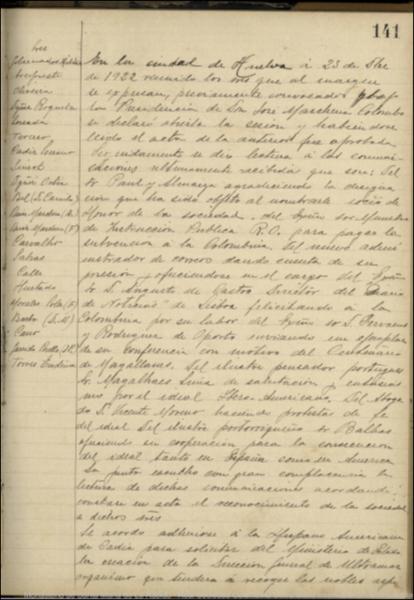 141
Sres
Terrero
Cadiz Serrano
Siurot
Carvalho
Calle
Hurtado
Cano
En la ciudad de Huelva á 23 de Dbre
de 1922 reunido los sres que al margen
se expresan, previamente convocados y bajo
la Presidencia de Don Jose Marchena Colombo
se declaró abierta la sesion y habiendose
leido el acta de la anterior fue aprobada
Seguidamente se dio lectura á las comuni-
caciones ultimamente recibidas que son: Del
Sr Paul y Almarza agradeciendo la designa
cion que ha sido objeto al nombrarle socio de
Honor de la sociedad, del Exmo Sr Ministro
de Instruccion Publica R.O. para pagar la
subvencion á la Colombina. Del nuevo admi
nistrador de correos dando cuenta de su
posesion y ofreciendose en el cargo del Exmo
Sr D. Augusto de Castro Director del Diario
de Noticias" de Lisboa felicitando á la
Colombina por su labor del Exmo Sr D. Serrano
y Rodriguez de Oporto enviando un ejemplar
de su conferencia con motivo del Centenario
de Magallanes. Del ilustre pensador portugues
Sr. Magalhaes Lima de salutacion y entusias
mos por el ideal Ibero-Americano. Del Aboga
do D. Vicente Moreno haciendo protesta de fe
del ideal Del ilustre portorriqueño Sr Balbas
ofreciendo su cooperacion para la consecucion
del ideal tanto en España como en America
La junta escuchó con gran complacencia la
lectura de dichas comunicaciones acordando
constase en acta el reconocimiento de la sociedad
a dichos sres
Se acordo adherirse á la Hispano Americana
de Cadiz para solicitar del Ministerio de Estado
la creacion de la Direccion Jeneral de Ultramar
organismo que tendera á recoger las nobles aspi